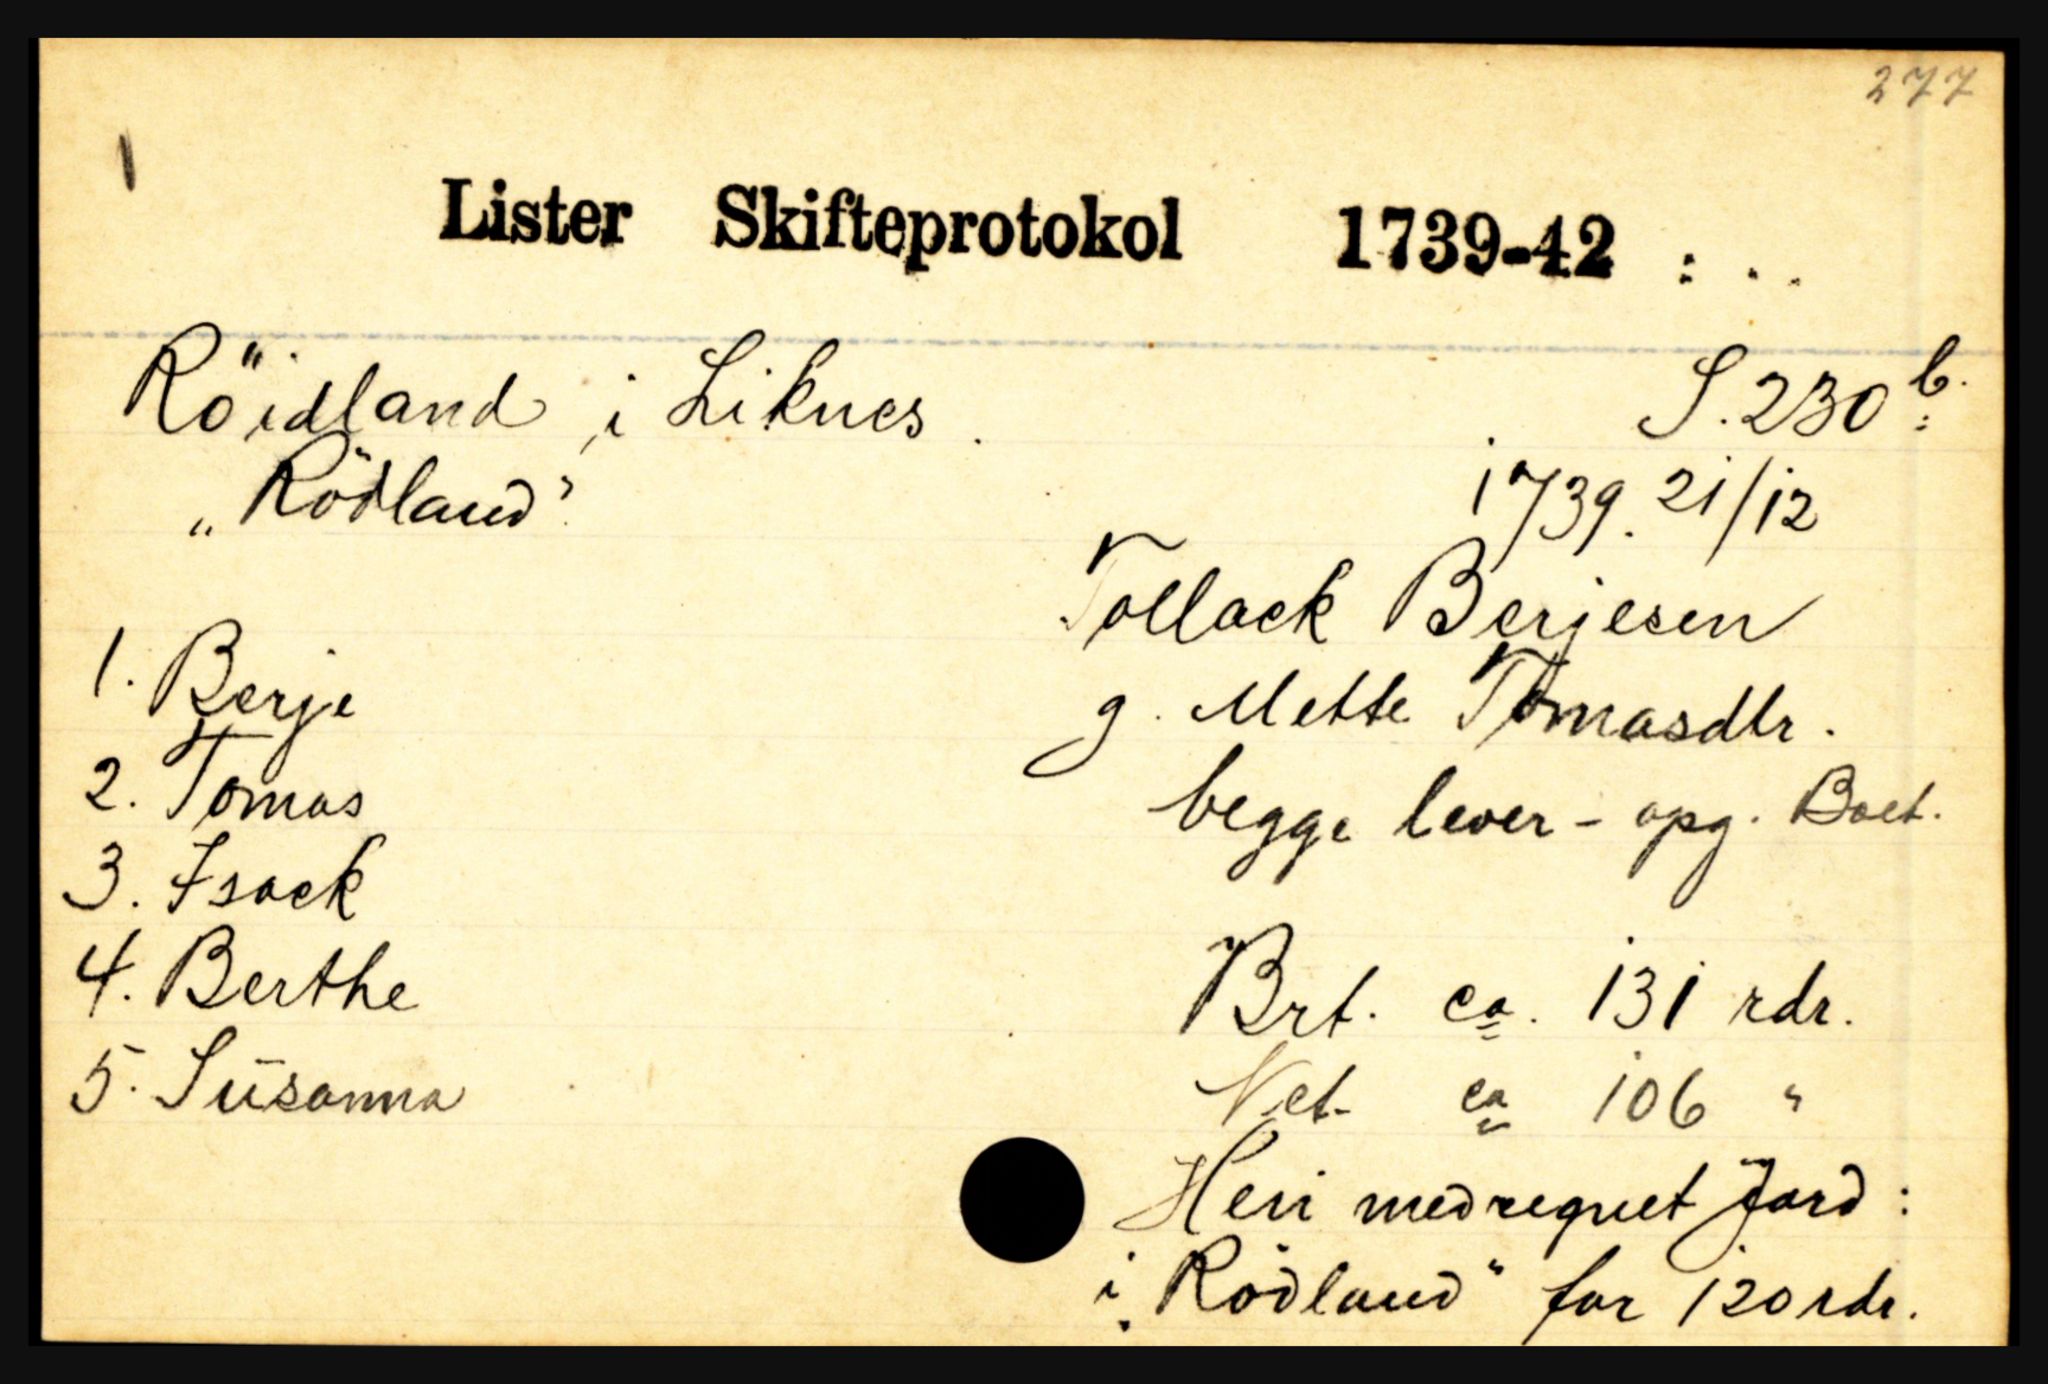 277
1
Lister Skifteprotokol 1739-42 : . .
Röidland i Liknes. S. 230 b.
„Rödland” 1739. 21/12
Tollack Berjesen
1. Berje g. Mette Tomasdtr.
2. Tomas begge lever - opg. Boet.
3. Isack
4. Berthe Brt. ca. 131 rdr.
5. Susanna Net. ca 106 "
Heri medregnet Jord :
i „Rödland" for 120 rdr.